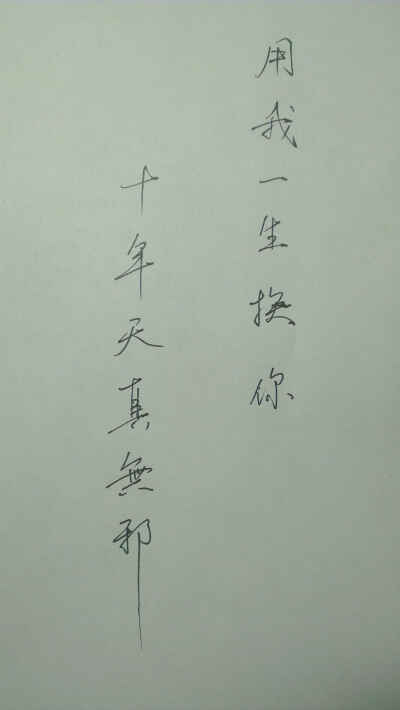 用我一生换你
十年天真無邪